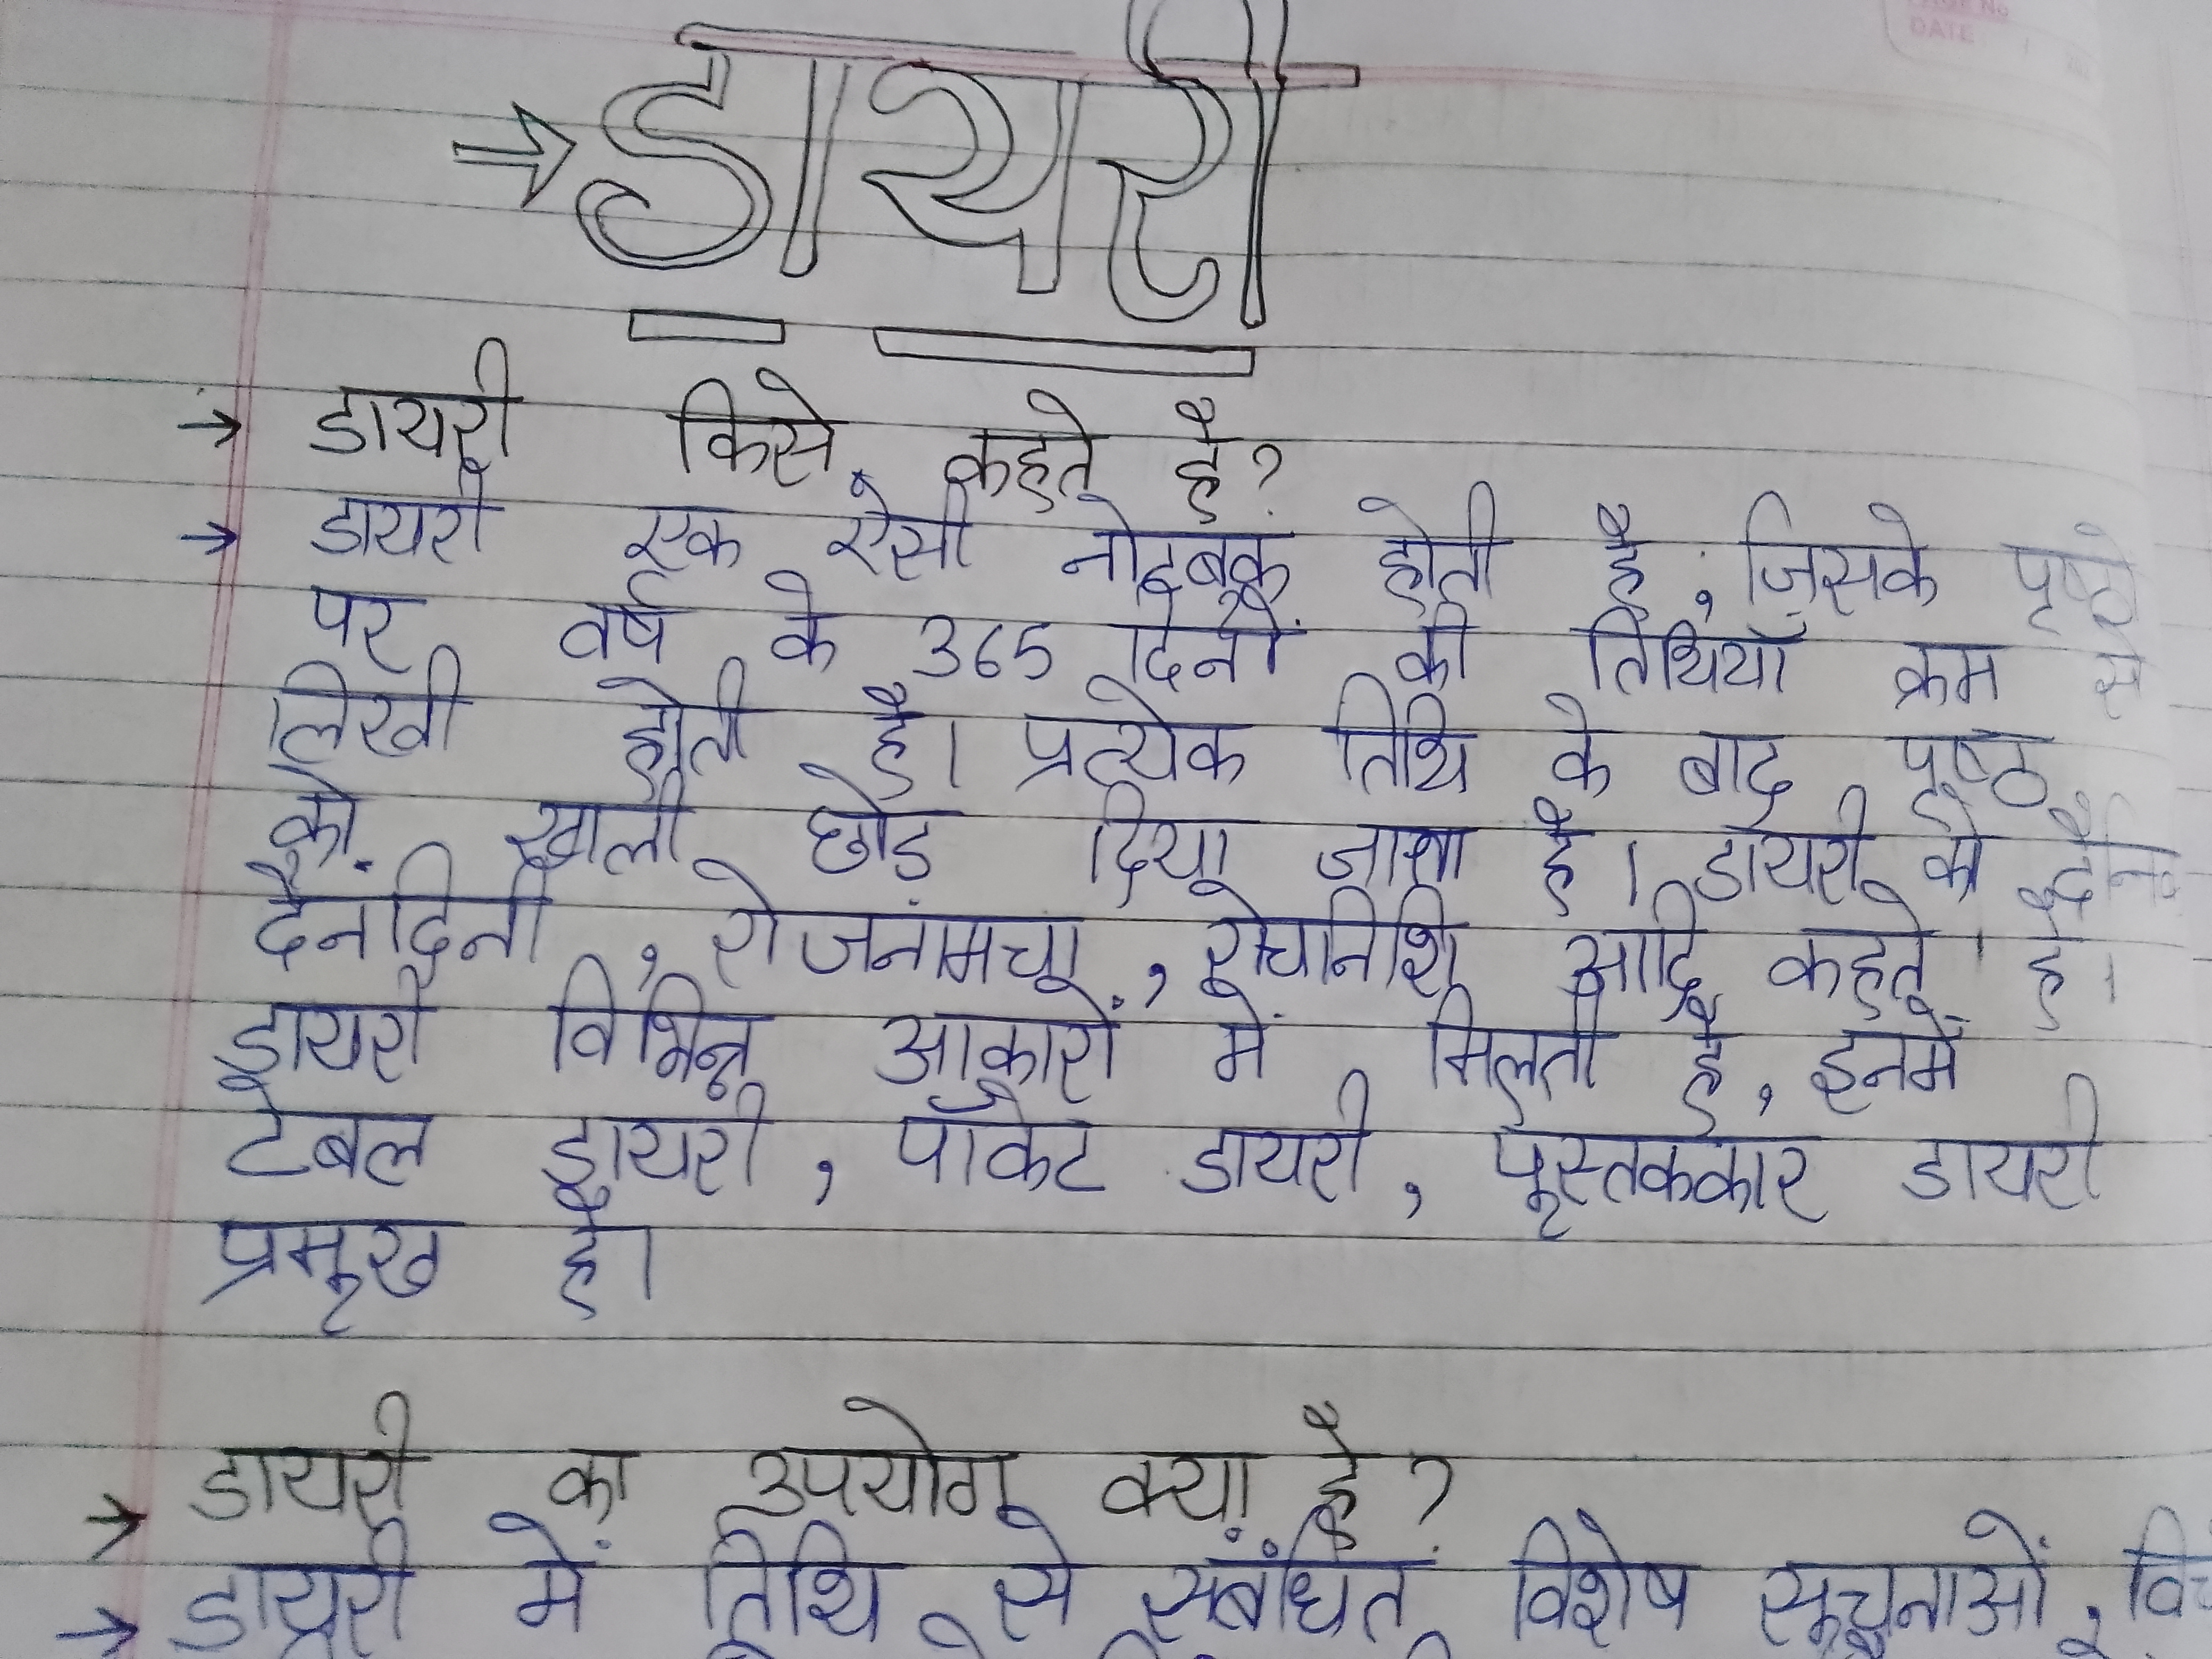 → डायरी
→ डायरी किसे कहते है?
→ डायरी एक ऐसी नोटबुक होती है, जिसके पृष्ठों
पर वर्ष के 365 दिनों की तिथियाँ क्रम से
लिखी होती है। प्रत्येक तिथि के बाद पृष्ठ
को खाली छोड़ दिया जाता है। डायरी को
दैनंदिनी, रोजनामचा, रोचनिशि आदि कहते है।
डायरी विभिन्न आकारों में मिलती है, इनमें
टेबल डायरी, पॉकेट डायरी, पूस्तककार डायरी
प्रमुख है।
→ डायरी का उपयोग क्या है?
→ डायरी में तिथि से संबंधित विशेष सूचनाओं,